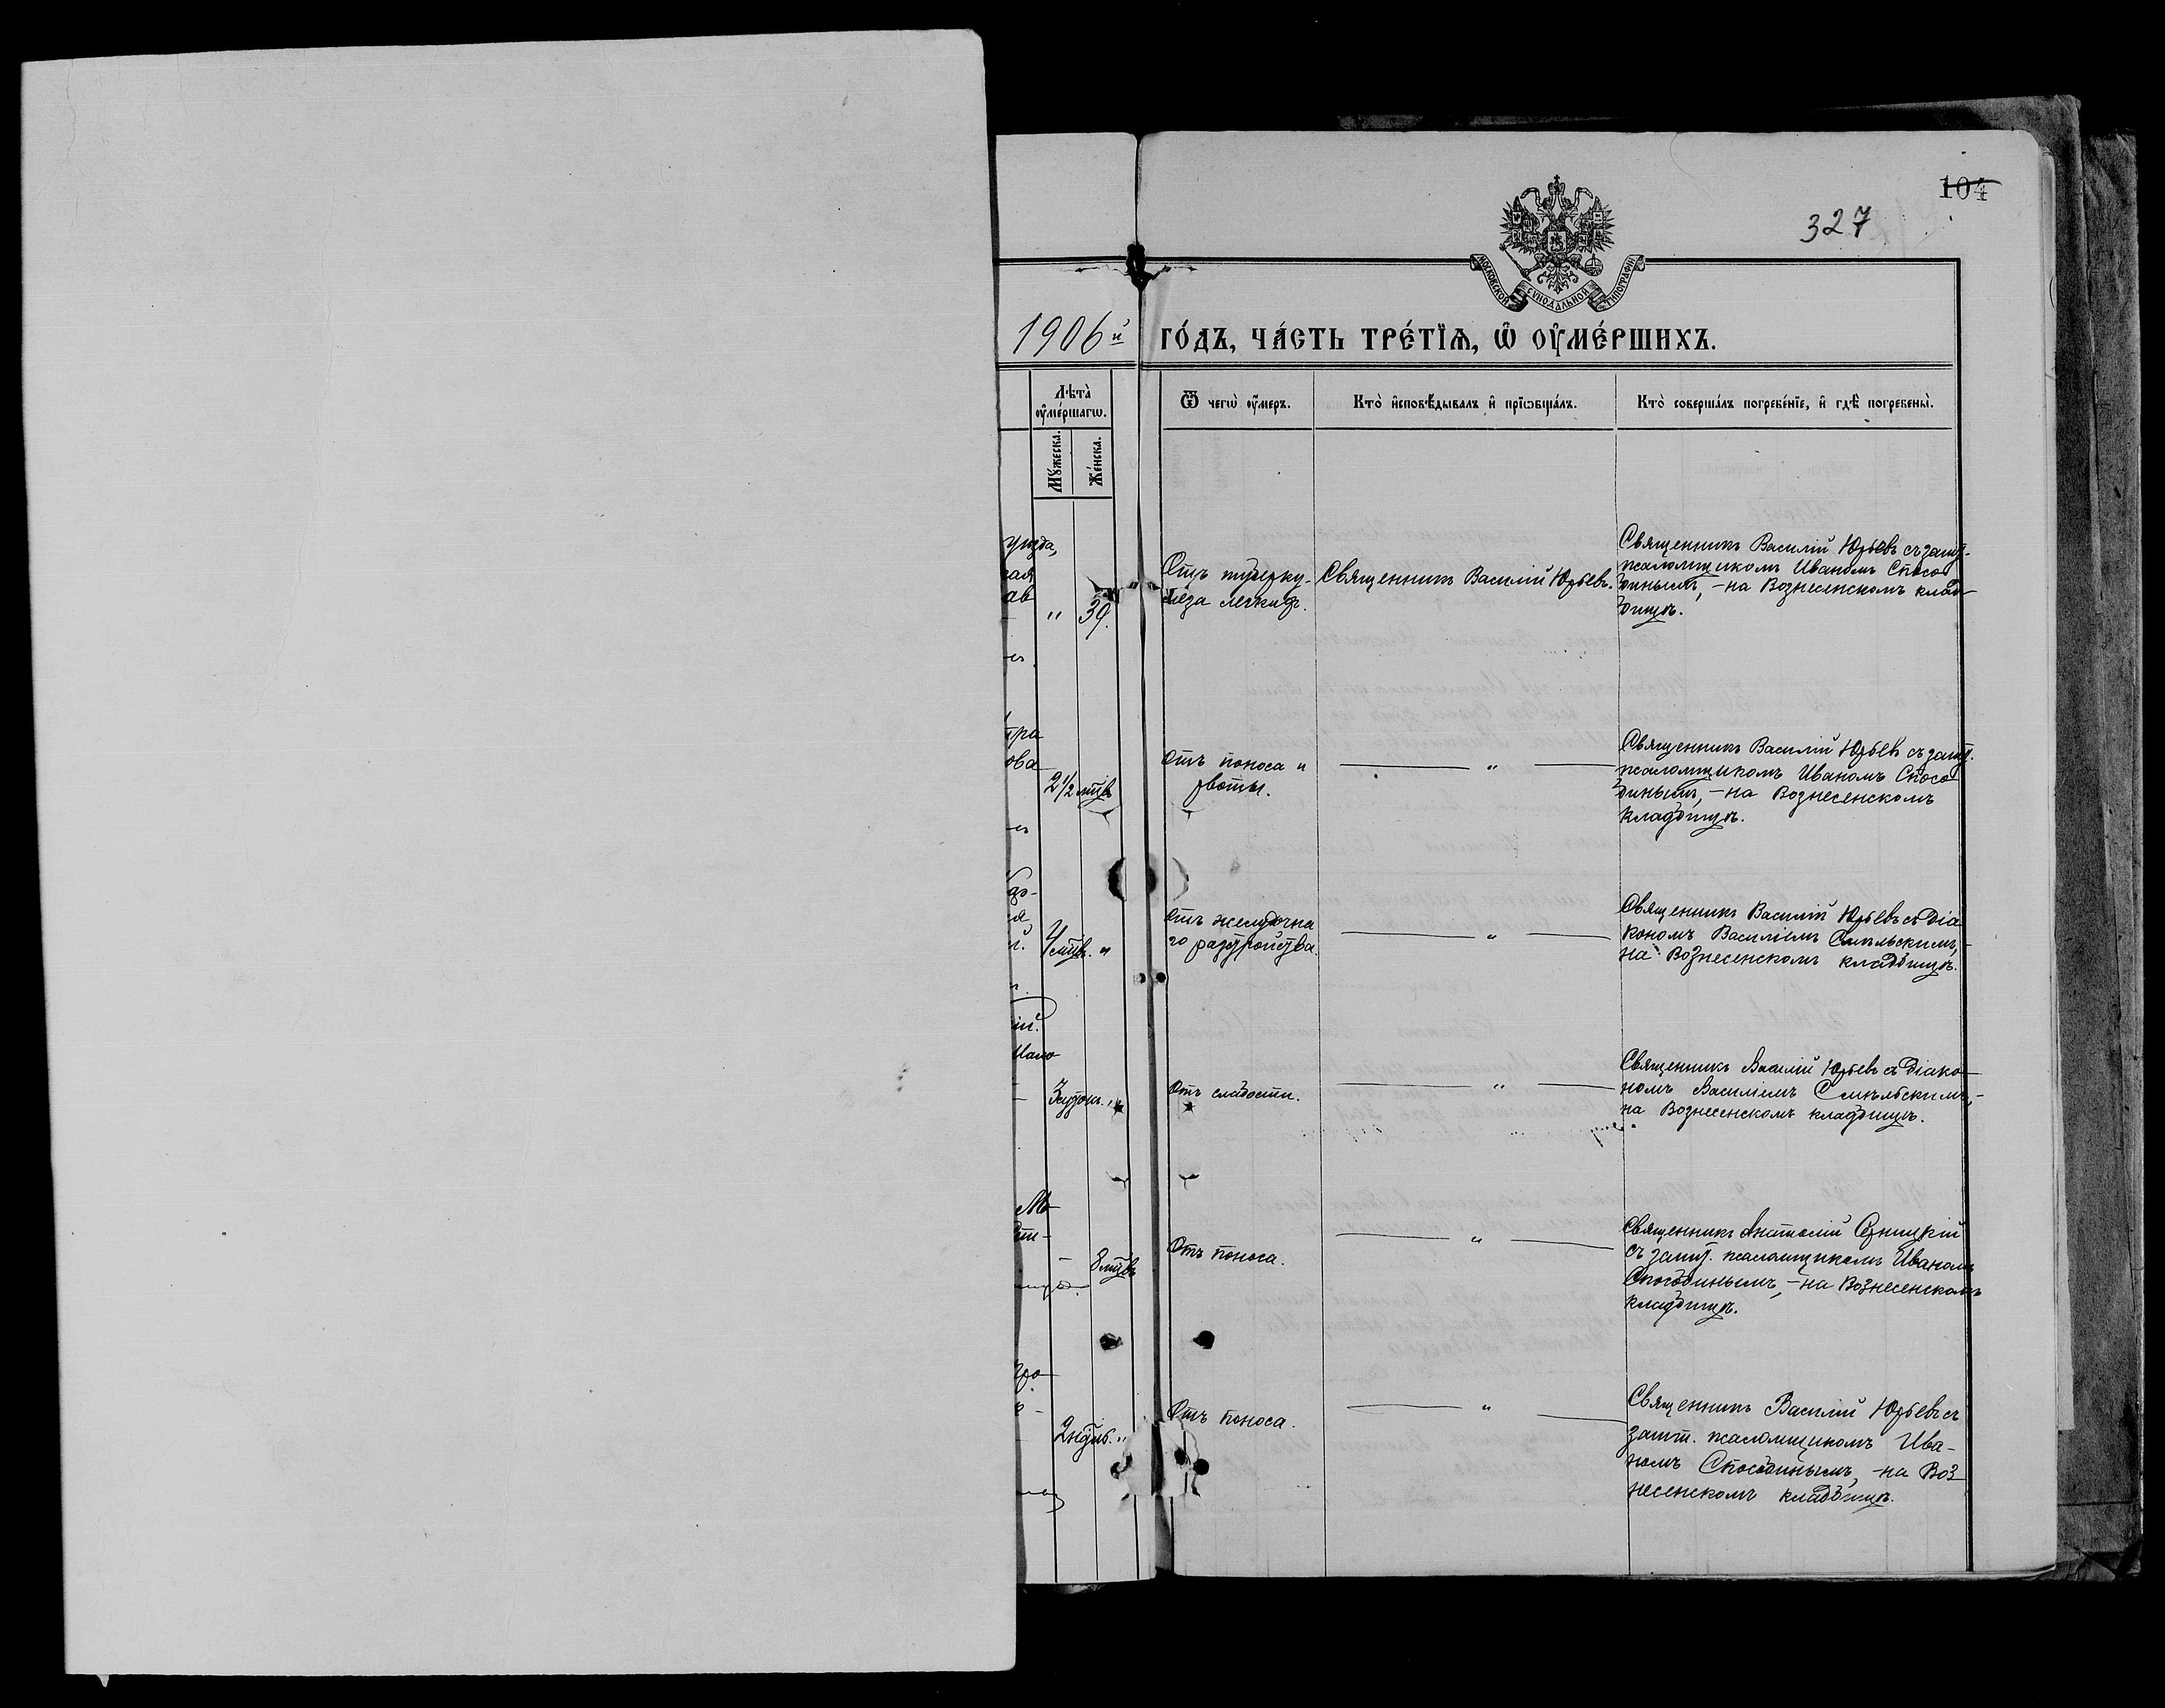 104
327
МОСКОВСКОЙ СѴНОДАЛЬНОЙ ТИПОГРАФІИ
1906й го́дъ, ча́сть тре́тїѧ, ѡ҆ ᲂу҆ме́ршихъ.
Лѣта̀ ᲂу҆ме́ршагѡ.
Мꙋ́жеска.
Же́нска.
Ѿ чегѡ̀ ᲂу҆́меръ.
Кто̀ и҆сповѣ́дывалъ и҆ прїѡбща́лъ.
Кто̀ соверша́лъ погребе́нїе, и҆ гдѣ̀ погребены̀.
уѣзда,
кая
ав
" 39.
Отъ туберку-
леза легкихъ.
Священникъ Василій Юрьевъ.
Священникъ Василій Юрьевъ съ зашт.
псаломщикомъ Иваномъ Спосо
биным, – на Вознесенскомъ клад-
бищѣ.
тра
ова
2 1/2 мѣсв
Отъ поноса и
рвоты.
"
Священникъ Василій Юрьевъ съ зашт.
псаломщикомъ Иваномъ Спосо
бинымъ, – на Вознесенскомъ
кладбищѣ.
4 мѣсв. "
Отъ желудочна
го разстройства.
"
Священникъ Василій Юрьевъ съ діа
кономъ Василіемъ Смѣльскимъ, –
на Вознесенскомъ кладбищѣ.
ій.
Мало
3 суток. "
Отъ слабости.
"
Священникъ Василій Юрьевъ съ діако-
номъ Василіемъ Смѣльскимъ, –
на Вознесенскомъ кладбищѣ.
8 мѣсвъ
Отъ поноса.
"
Священникъ Анатолій
съ зашт. псаломщикомъ Иваномъ
Способинымъ, – на Вознесенскомъ
кладбищѣ.
2 недѣл. "
Отъ поноса.
"
Священникъ Василій Юрьевъ съ
зашт. псаломщикомъ Ива-
номъ Способинымъ, – на Воз
несенскомъ кладбищѣ.